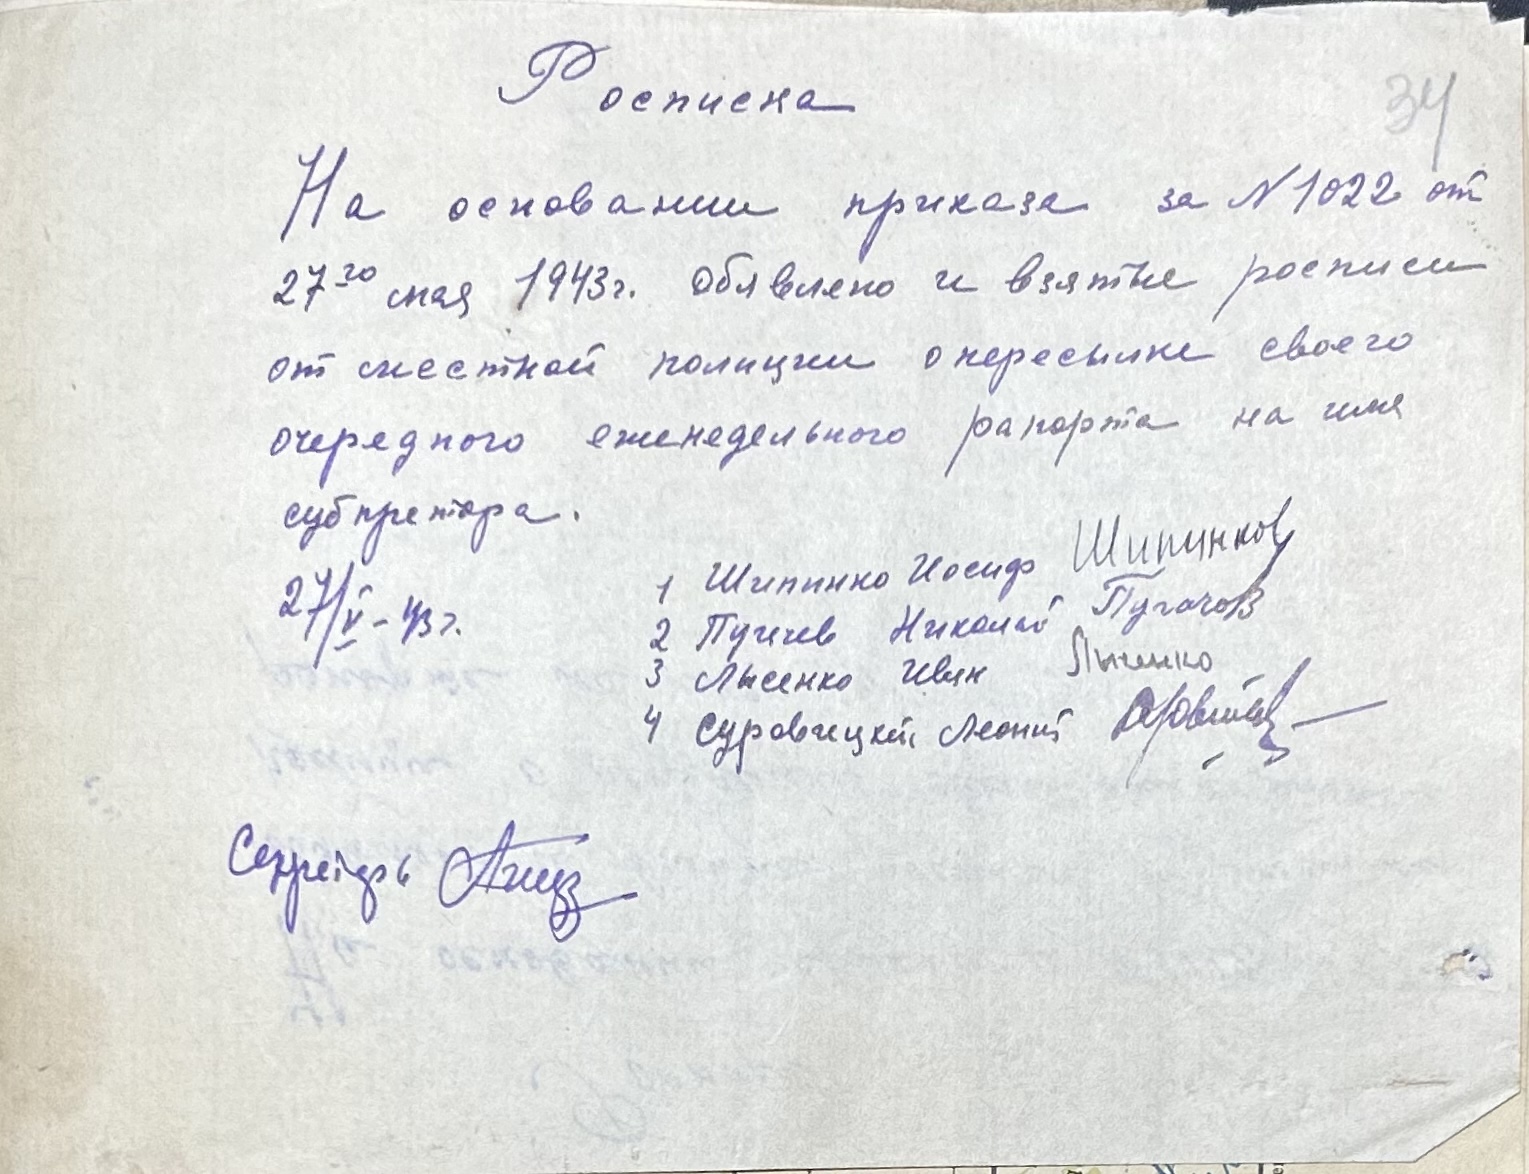 34
Росписка
На основании приказа за N 1022 от
27го мая 1943г. Обявлено и взятые росписи
от местной полиции о пересылке своего
очередного еженедельного рапорта на имя
субпретора.
27/V - 43г.
1 Шипинко Иосиф Шипинков
2 Пугачев Николай Пугачов
3 Лысенко Иван Лысенко
4 Суровицкий Леонит
Секретарь